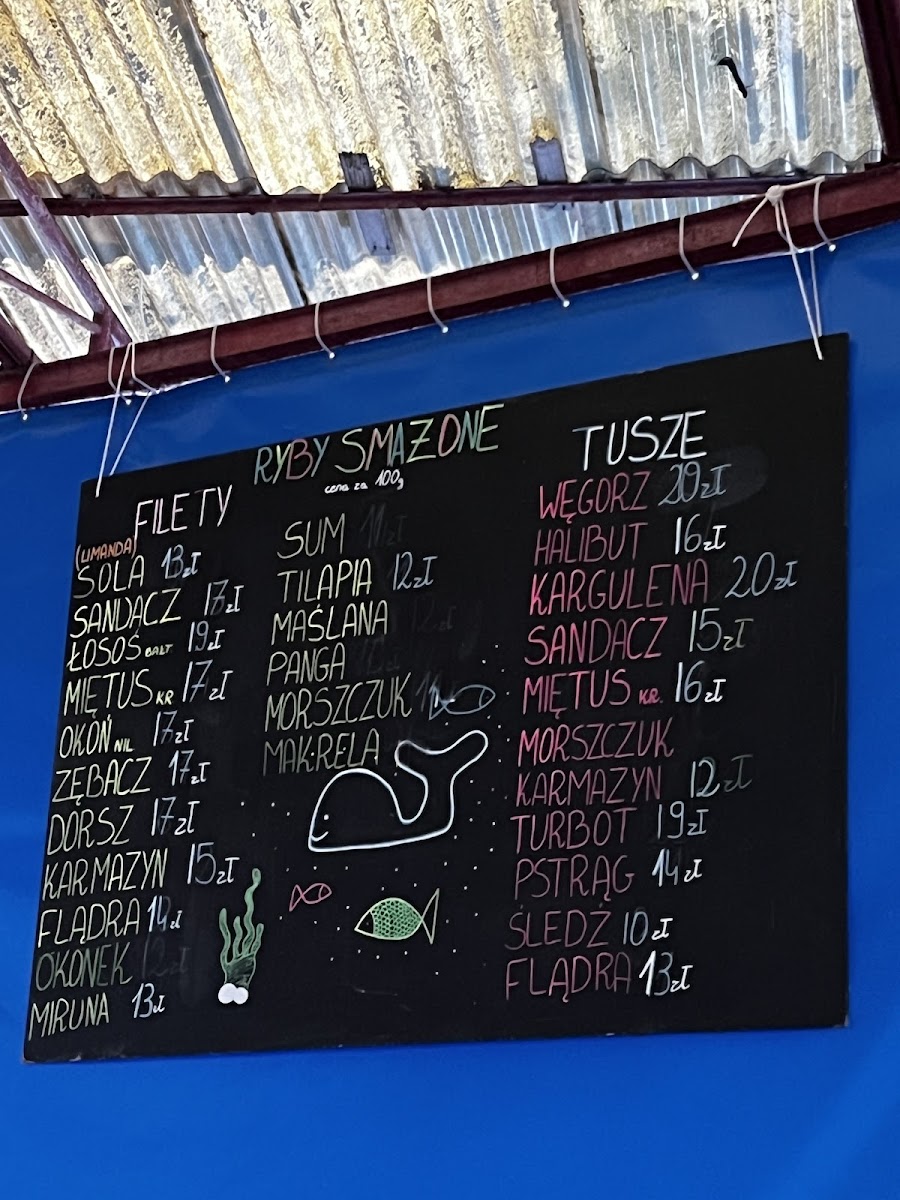 RYBY SMAŻONE
cena za 100g
FILETY
(LIMANDA)
SOLA 13zł
SANDACZ 17zł
ŁOSOŚ BAŁT 19zł
MIĘTUS KR 17zł
OKOŃ NIL 17zł
ZĘBACZ 17zł
DORSZ 17zł
KARMAZYN 15zł
FLĄDRA 14zł
OKONEK 12zł
MIRUNA 13zł
SUM 11zł
TILAPIA 12zł
MAŚLANA 12zł
PANGA
MORSZCZUK
MAKRELA
TUSZE
WĘGORZ 20zł
HALIBUT 16zł
KARGULENA 20zł
SANDACZ 15zł
MIĘTUS KR. 16zł
MORSZCZUK
KARMAZYN 12zł
TURBOT 19zł
PSTRĄG 14zł
ŚLEDŹ 10zł
FLĄDRA 13zł